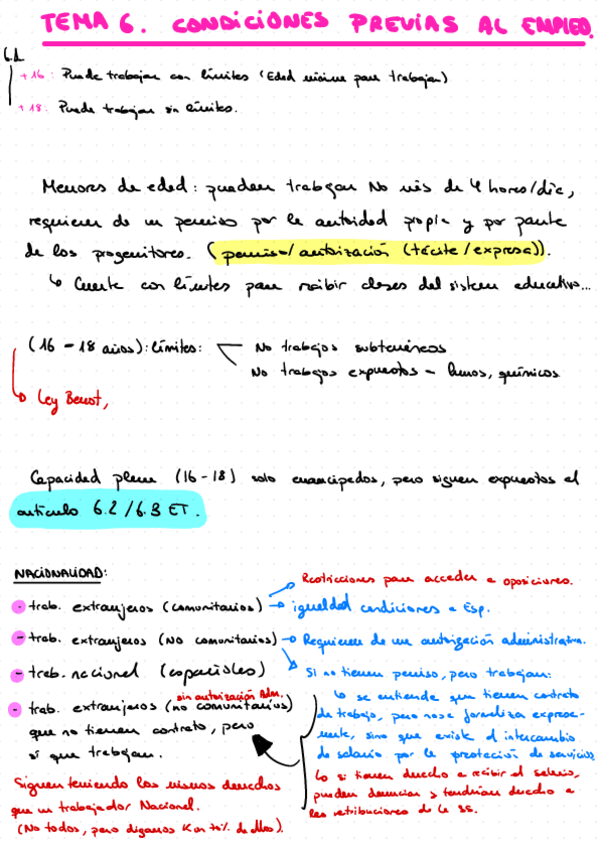 TEMA 6. CONDICIONES PREVIAS AL EMPLEO.
6.1.
+16: Puede trabajar con límites (Edad mínima para trabajar)
+18: Puede trabajar sin límites.
Menores de edad: pueden trabajar No más de 4 horas/día,
requieren de un permiso por la autoridad propia y por parte
de los progenitores. (permiso/autorización (tácita/expresa)).
↳ Cuente con límites para recibir clases del sistema educativo...
(16 - 18 años): límites:
No trabajos subterráneos
No trabajos expuestos - humos, químicos
↳ Ley Benot,
Capacidad plena (16-18) solo emancipados, pero siguen expuestos al
artículo 6.2/6.3 ET.
NACIONALIDAD:
Restricciones para acceder a oposiciones.
- trab. extranjeros (comunitarios) → igualdad condiciones a Esp.
- trab. extranjeros (No comunitarios) → Requieren de una autorización administrativa.
- trab. nacional (españoles)
Si no tienen permiso, pero trabajan:
sin autorización Adm.
- trab. extranjeros (no comunitarios)
que no tienen contrato, pero
sí que trabajan.
↳ se entiende que tienen contrato
de trabajo, pero no se formaliza expresa-
mente, sino que existe el intercambio
de salario por la prestación de servicios
↳ si tienen derecho a recibir el salario,
pueden denunciar y tendrían derecho a
las retribuciones de la SS.
Siguen teniendo los mismos derechos
que un trabajador Nacional.
(No todos, pero digamos